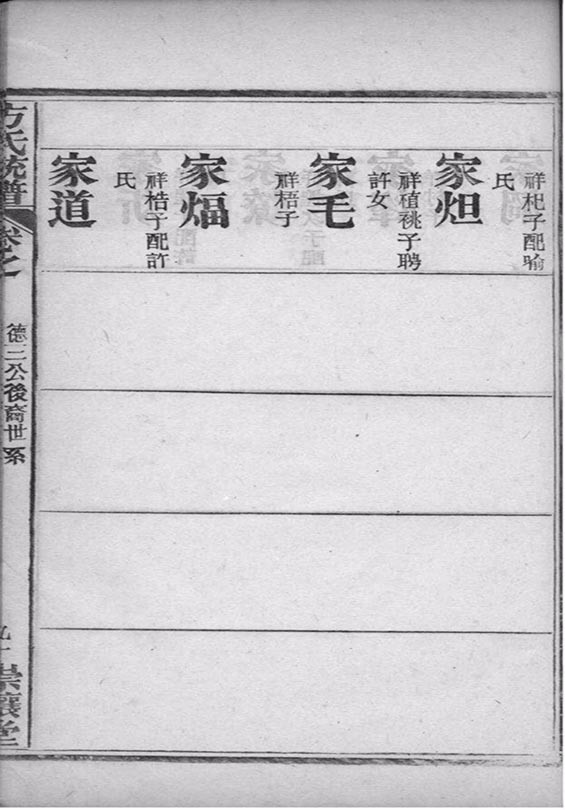 祥杞子配喻
氏
家炟
祥植祧子聘
許女
家毛
祥梧子
家煏
祥梏子配許
氏
家道
方氏統譜
卷之
德三公後裔世系
崇讓堂